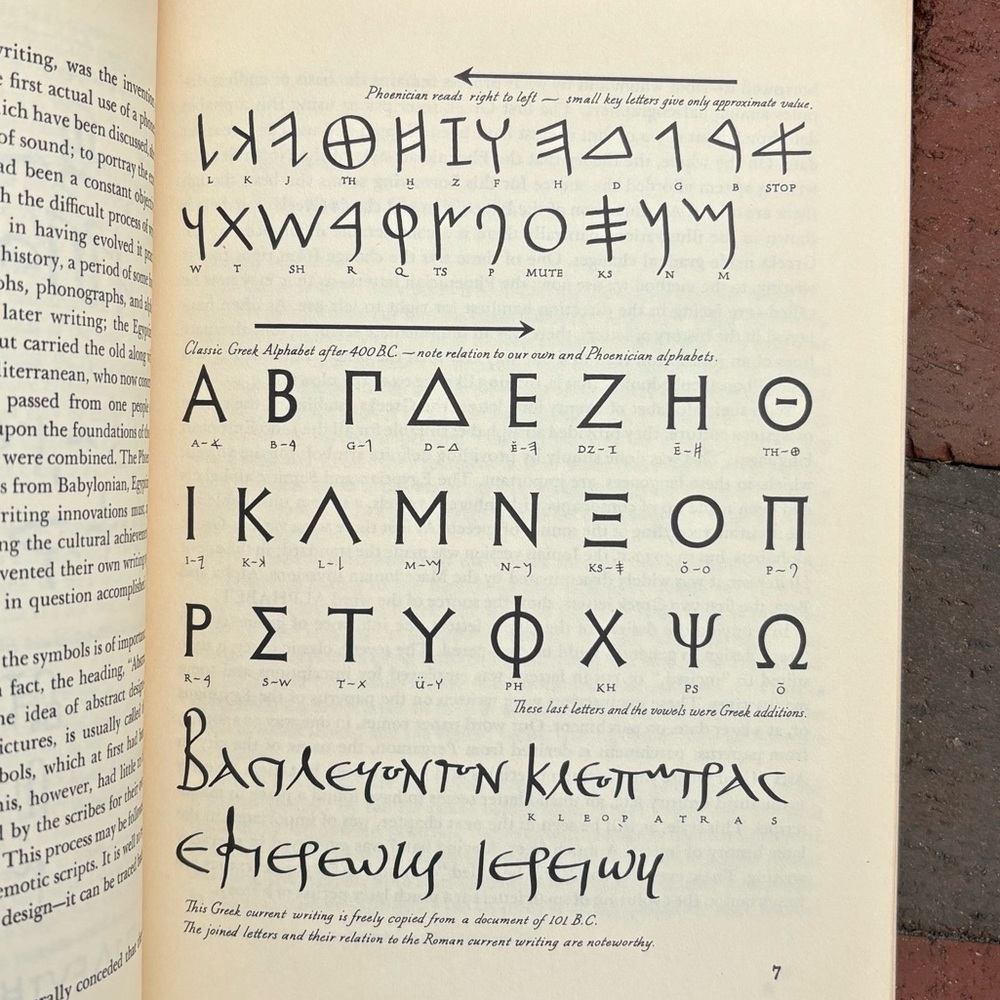 writing, was the
first actual use of a
which have been discussed,
of sound; to portray the
had been a constant
the difficult process of
in having evolved it
history, a period of some
phonographs, and
later writing; the
but carried the old along
who now
passed from one people
upon the foundations of the
were combined. The
from Babylonian,
writing innovations
the cultural
invented their own
in question
the symbols is of
fact, the heading,
the idea of abstract
pictures, is usually called
which at first had
this, however, had little
by the scribes for their
This process may be
scripts. It is well
design—it can be traced
conceded that
Phoenician reads right to left — small key letters give only approximate value.
𐤀𐤁𐤂𐤃𐤄𐤅𐤆𐤇𐤈𐤉𐤊𐤋
L K J TH H Z F H D G B STOP
𐤌𐤍𐤎𐤏𐤐𐤑𐤒𐤓𐤔𐤕𐤅
W T SH R Q TS P MUTE KS N M
Classic Greek Alphabet after 400 B.C. — note relation to our own and Phoenician alphabets.
Α Β Π Δ Ε Ζ Η Θ
A-𐤀 B-𐤁 G-𐤂 D-𐤃 Ĕ-𐤄 DZ-𐤆 Ē-𐤇 TH-𐤈
Ι Κ Λ Μ Ν Ξ Ο Π
I-𐤉 K-𐤊 L-𐤋 M-𐤌 N-𐤍 KS-𐤎 Ŏ-𐤏 P-𐤐
Ρ Σ Τ Υ Φ Χ Ψ Ω
R-𐤓 S-𐤔 T-𐤕 Ü-𐤅 PH KH PS Ō
These last letters and the vowels were Greek additions.
Βασιλευοντων Κλεοπατρας
K L E O P A T R A S
εφιερεων ιερειων
This Greek current writing is freely copied from a document of 101 B.C.
The joined letters and their relation to the Roman current writing are noteworthy.
7